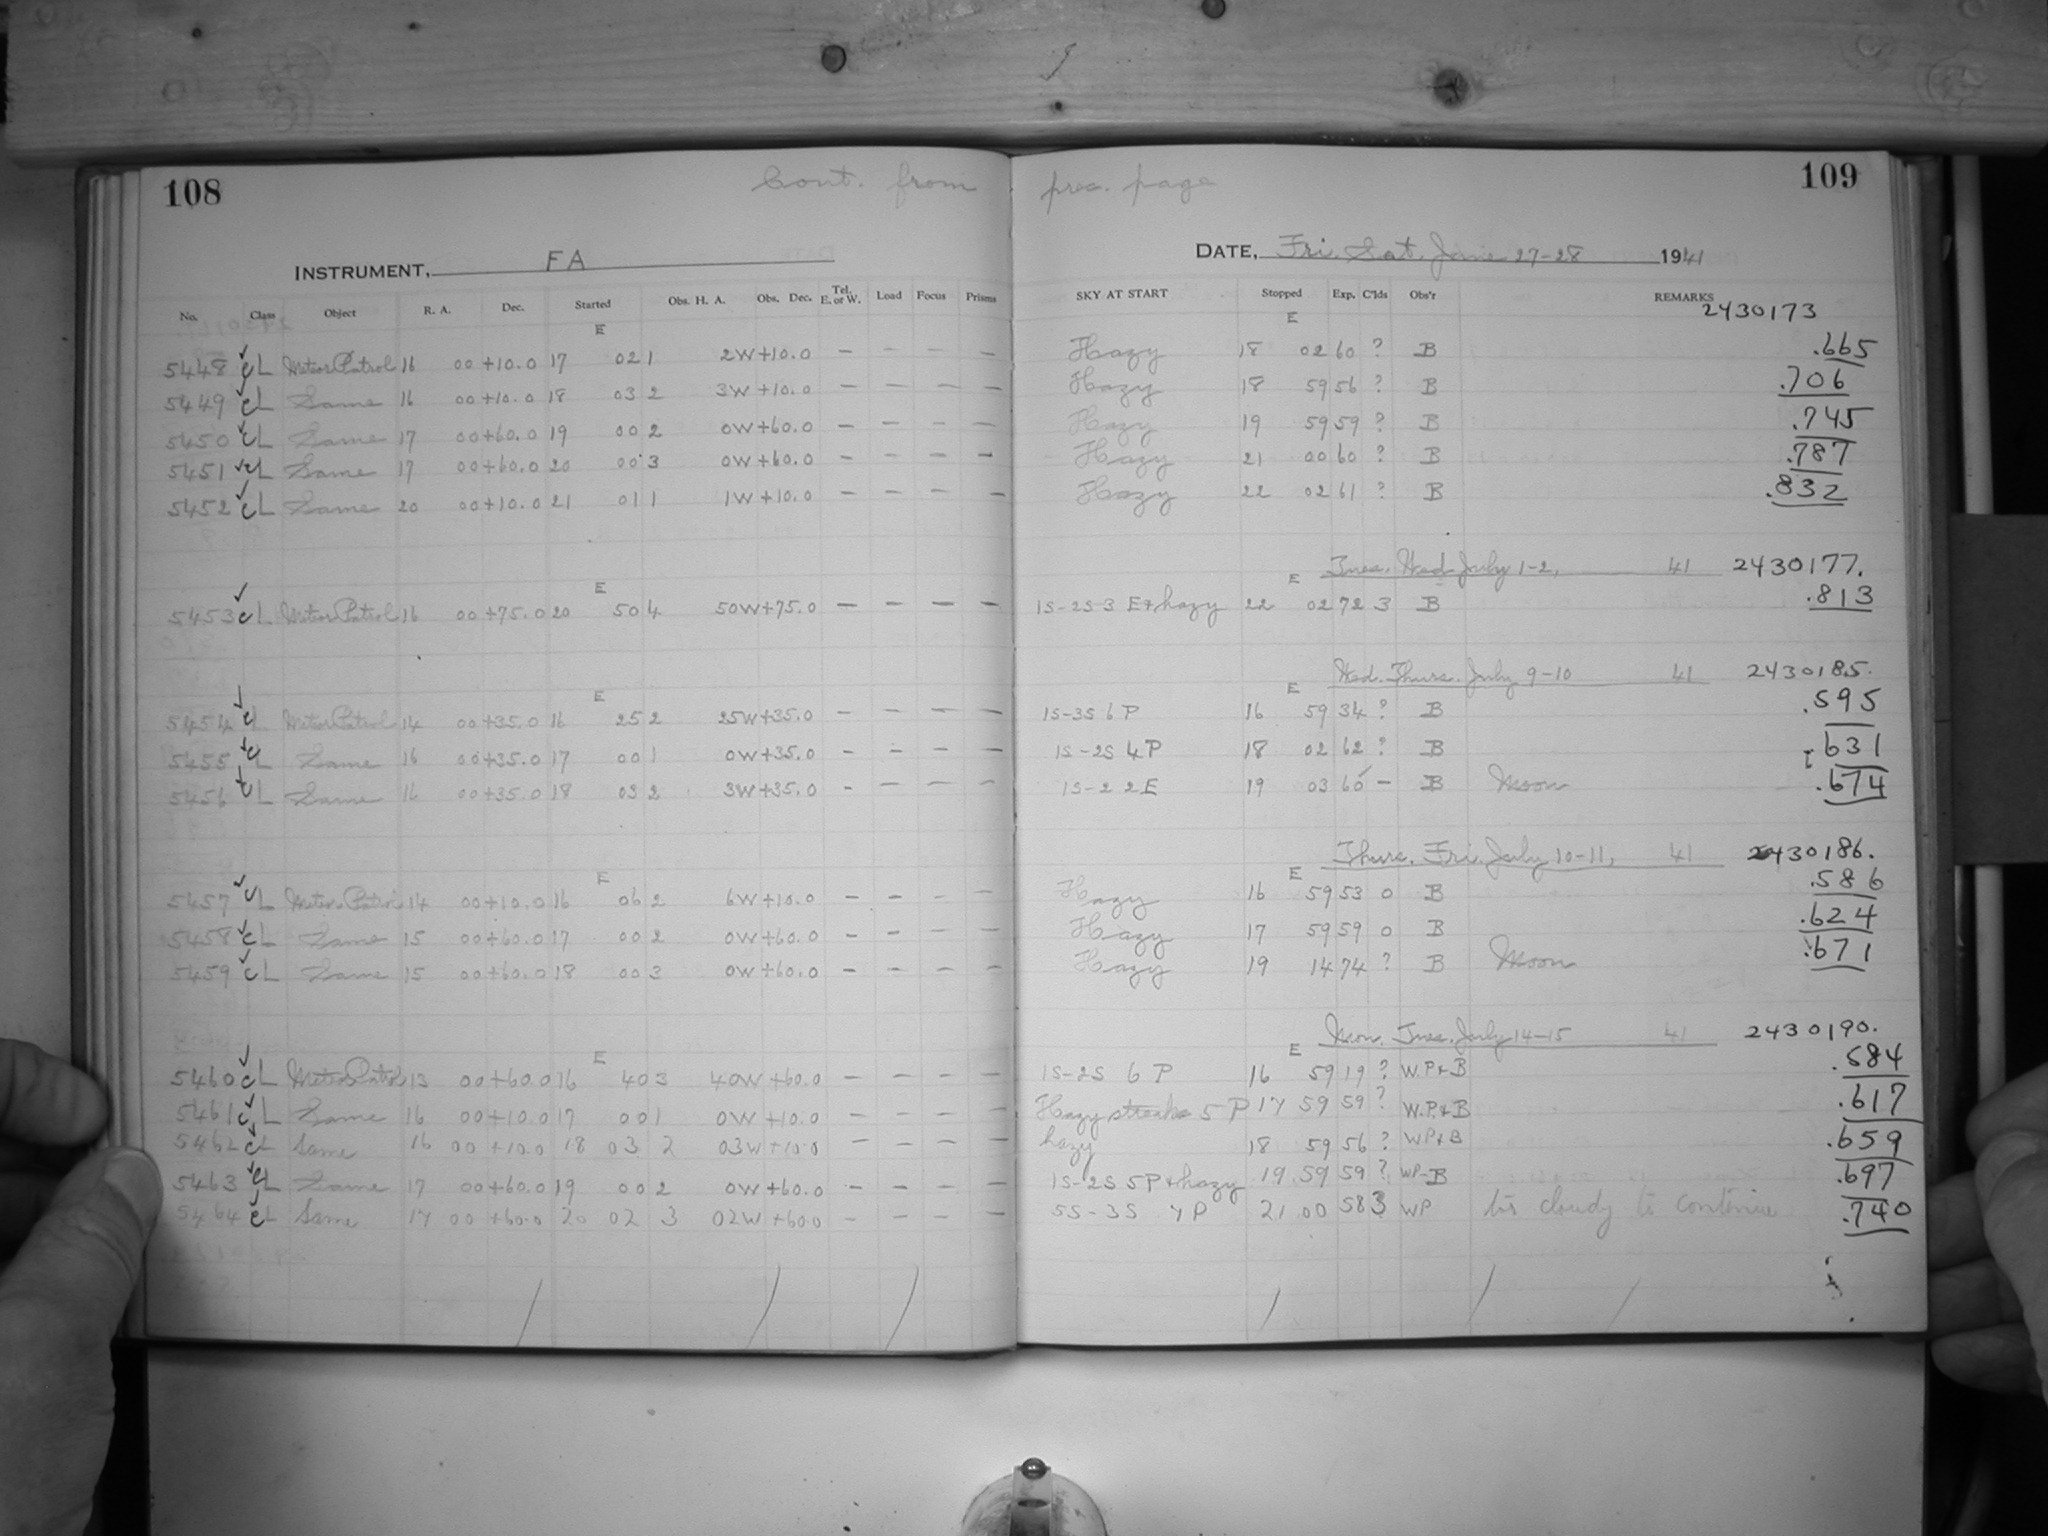 108 Cont. from prec. page 109
INSTRUMENT, FA DATE, Fri. Sat. June 27-28 1941
No. Class Object R. A. Dec. Started Obs. H. A. Obs. Dec. Tel. E. or W. Load Focus Prisms SKY AT START Stopped Exp. C'lds Obs'r REMARKS
E E 2430173
5448 cL Meteor Patrol 16 00 +10.0 17 02 1 2W +10.0 — — — — Hazy 18 02 60 ? B .665
5449 cL Same 16 00 +10.0 18 03 2 3W +10.0 — — — — Hazy 18 59 56 ? B .706
5450 cL Same 17 00 +60.0 19 00 2 0W +60.0 — — — — Hazy 19 59 59 ? B .745
5451 cL Same 17 00 +60.0 20 00 3 0W +60.0 — — — — Hazy 21 00 60 ? B .787
5452 cL Same 20 00 +10.0 21 01 1 1W +10.0 — — — — Hazy 22 02 61 ? B .832
Tues. Wed July 1-2, 41 2430177.
E E
5453 cL Meteor Patrol 16 00 +75.0 20 50 4 50W +75.0 — — — — 1S-2S-3 E+hazy 22 02 72 3 B .813
Wed. Thurs. July 9-10 41 2430185.
E E
5454 cL Meteor Patrol 14 00 +35.0 16 25 2 25W +35.0 — — — — 1S-3S 6 P 16 59 34 ? B .595
5455 cL Same 16 00 +35.0 17 00 1 0W +35.0 — — — — 1S-2S 4P 18 02 62 ? B .631
5456 cL Same 16 00 +35.0 18 03 2 3W +35.0 — — — — 1S-2 2E 19 03 60 — B Moon .674
Thurs. Fri. July 10-11, 41 2430186.
E E
5457 cL Meteor Patrol 14 00 +10.0 16 06 2 6W +10.0 — — — — Hazy 16 59 53 0 B .586
5458 cL Same 15 00 +60.0 17 00 2 0W +60.0 — — — — Hazy 17 59 59 0 B .624
5459 cL Same 15 00 +60.0 18 00 3 0W +60.0 — — — — Hazy 19 14 74 ? B Moon .671
Mon. Tues. July 14-15 41 2430190.
E E
5460 cL Meteor Patrol 13 00 +60.0 16 40 3 40W +60.0 — — — — 1S-2S 6 P 16 59 19 ? W.P+B .584
5461 cL Same 16 00 +10.0 17 00 1 0W +10.0 — — — — Hazy streaks 5 P 17 59 59 ? W.P.+B .617
5462 cL Same 16 00 +10.0 18 03 2 03W +10.0 — — — — hazy 18 59 56 ? WP+B .659
5463 cL Same 17 00 +60.0 19 00 2 0W +60.0 — — — — 1S-2S 5P+hazy 19 59 59 ? WP-B .697
5464 cL Same 17 00 +60.0 20 02 3 02W +60.0 — — — — 5S-3S 7P 21 00 58 3 WP too cloudy to continue .740